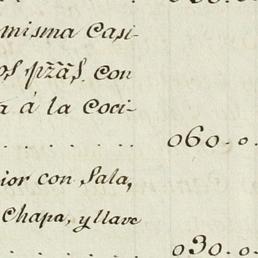 misma casi-
os pzãs. con
a á la coci-
. . . . . 060. 0.
ior con Sala,
Chapa, y llave
. . . . . 030. 0.